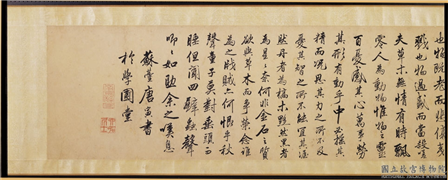 也物既老而悲傷夷
戮也物過盛而當殺嗟
夫草木無情有時飄
零人為動物惟物之靈
百憂感其心萬事勞
其形有動乎中必搖其
精而況思其力之所不及
憂其智之所不能宜其渥
然丹者為槁木黟然黑者
為星星奈何非金石之質
欲與草木而爭榮念誰
為之戕賊亦何恨乎秋
聲童子莫對垂頭而
睡但聞四壁蟲聲
唧唧如助余之嘆息
蘇臺唐寅書
於學圃堂
國立故宮博物院